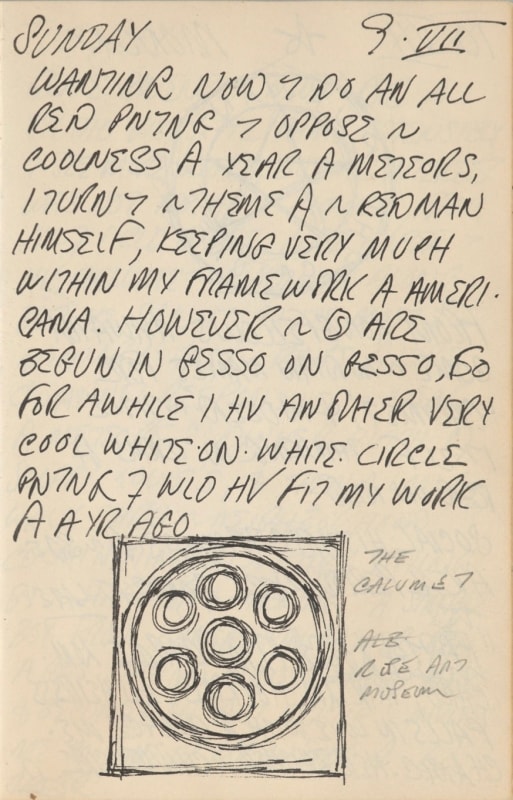 SUNDAY 9·VII
WANTING NOW 7 DO AN ALL
RED PNTNG 7 OPPOSE ~
COOLNESS A YEAR A METEORS,
I TURN 7 ~ THEME A ~ REDMAN
HIMSELF, KEEPING VERY MUCH
WITHIN MY FRAMEWORK A AMERI·
CANA. HOWEVER ~ ⑤ ARE
BEGUN IN GESSO ON GESSO, SO
FOR AWHILE I HV ANOTHER VERY
COOL WHITE·ON·WHITE CIRCLE
PNTNG 7 WLD HV FIT MY WORK
A A YR AGO
THE
CALUMET
ALB
ROSE ART
MUSEUM